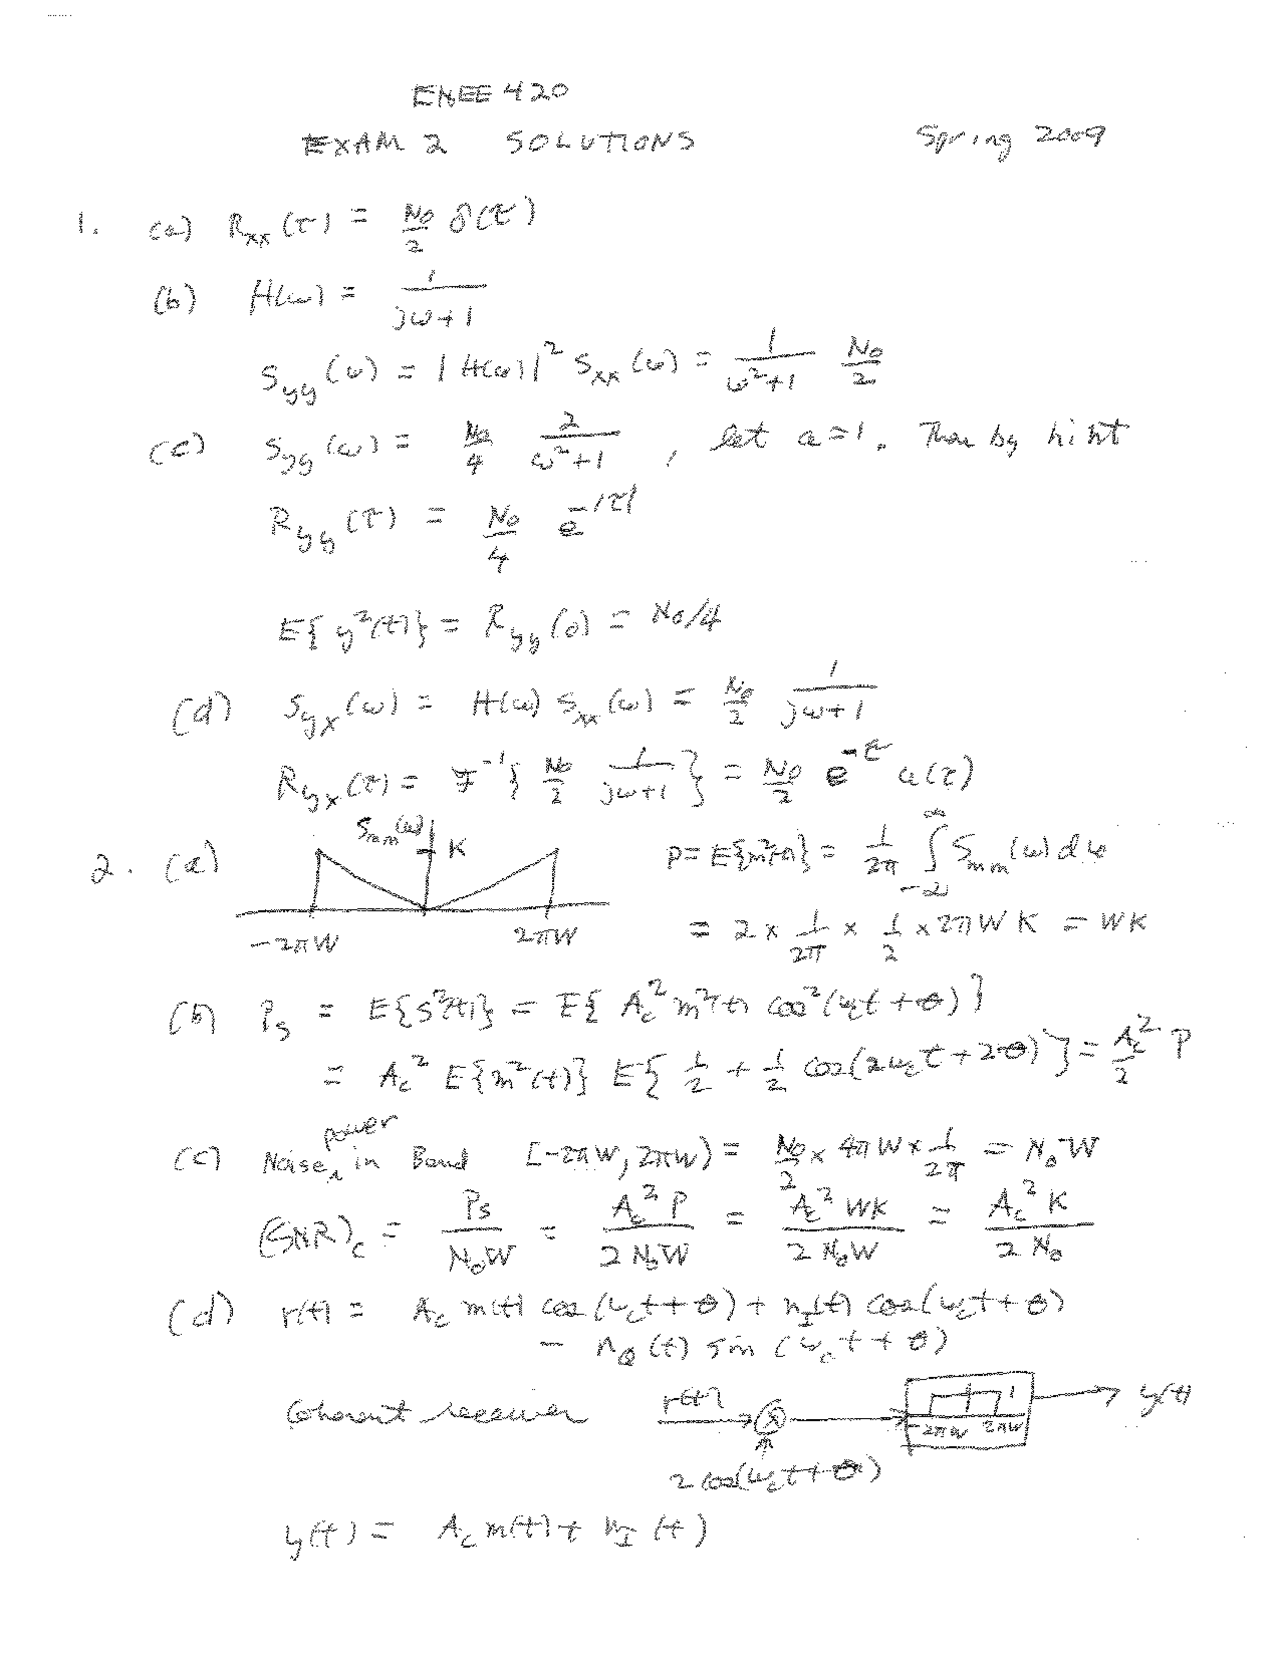 ENEE 420
EXAM 2 SOLUTIONS Spring 2009
1. (a) R_xx(τ) = N₀/2 δ(τ)
(b) H(ω) = 1/(jω+1)
S_yy(ω) = |H(ω)|² S_xx(ω) = 1/(ω²+1) N₀/2
(c) S_yy(ω) = N₀/4 2/(ω²+1), let a=1. Then by hint
R_yy(τ) = N₀/4 e^{-|τ|}
E{y²(t)} = R_yy(0) = N₀/4
(d) S_yx(ω) = H(ω) S_xx(ω) = N₀/2 1/(jω+1)
R_yx(τ) = F⁻¹{N₀/2 1/(jω+1)} = N₀/2 e^{-τ} u(τ)
2. (a) S_mm(ω) K P = E{m²(t)} = 1/2π ∫_{-∞}^{∞} S_mm(ω) dω
-2πW 2πW = 2 × 1/2π × 1/2 × 2πW K = WK
(b) P_s = E{s²(t)} = E{A_c² m²(t) cos²(ω_c t + θ)}
= A_c² E{m²(t)} E{1/2 + 1/2 cos(2ω_c t + 2θ)} = A_c²/2 P
(c) Noise power in Band [-2πW, 2πW) = N₀/2 × 4πW × 1/2π = N₀W
(SNR)_c = P_s/(N₀W) = A_c² P/(2 N₀W) = A_c² WK/(2 N₀W) = A_c² K/(2 N₀)
(d) r(t) = A_c m(t) cos(ω_c t + θ) + n_I(t) cos(ω_c t + θ)
- n_Q(t) sin(ω_c t + θ)
Coherent receiver r(t) × 1 -2πW 2πW y(t)
2 cos(ω_c t + θ)
y(t) = A_c m(t) + n_I(t)